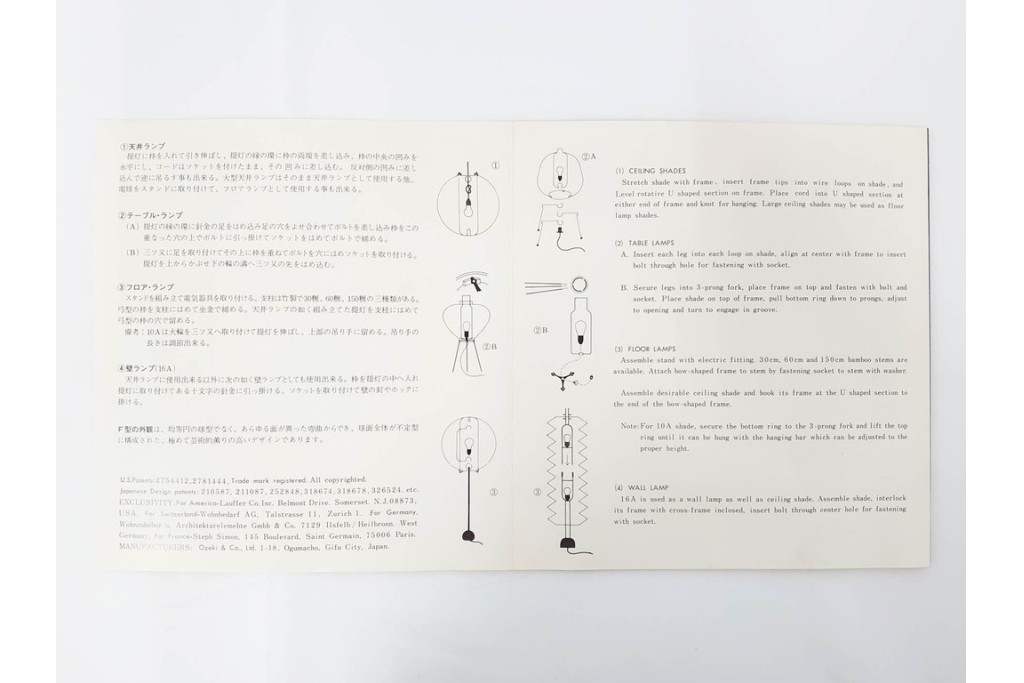 ①天井ランプ
提灯に枠を入れて引き伸ばし、提灯の縁の環に枠の両端を差し込み、枠の中央の凹みを
水平にし、コードはソケットを付けたまま、その凹みに差し込む。反対側の凹みに差し
込んで逆に吊るす事も出来る。大型天井ランプはそのまま天井ランプとして使用する他、
電球をスタンドに取り付けて、フロアランプとして使用する事も出来る。
②テーブル・ランプ
(A) 提灯の縁の環に針金の足をはめ込み足の穴をよせ合わせてボルトを差し込み枠をこの
重なった穴の上でボルトに引っ掛けてソケットをはめてボルトで締める。
(B) 三ツ又に足を取り付けてその上に枠を重ねてボルトを穴にはめソケットを取付ける。
提灯を上からかぶせ下の輪の溝へ三ツ又の先をはめ込む。
③フロア・ランプ
スタンドを組み立て電気器具を取り付ける。支柱は竹製で30糎、60糎、150糎の三種類がある。
弓型の枠を支柱にはめて坐金で締める。天井ランプの如く組み立てた提灯を支柱にはめて
弓型の枠の穴で留める。
備考：10Aは火輪を三ツ又へ取り付けて提灯を伸ばし、上部の吊り手に留める。吊り手の
長さは調節出来る。
④壁ランプ(16A)
天井ランプに使用出来る以外に次の如く壁ランプとしても使用出来る。枠を提灯の中へ入れ
提灯に取り付けてある十文字の針金に引っ掛ける。ソケットを取り付けて壁の釘やホックに
掛ける。
F型の外観は、均等円の球型でなく、あらゆる面が異った弯曲からでき、球面全体が不定型
に構成された、極めて芸術的薫りの高いデザインであります。
U.S.Patents: 2754412, 2781444, Trade mark registered. All copyrighted.
Japanese Design patents: 210587, 211087, 252848, 318674, 318678, 326524, etc.
EXCLUSIVITY: For America-Lauffer Co. Inc. Belmont Drive. Somerset. N.J. 08873,
USA. For Switzerland-Wohnbedarf AG, Talstrasse 11, Zurich 1. For Germany,
Wohnzubehur u. Architekturelemehte Gmbh & Co. 7129 Ilsfelb/Heilbronn. West
Germany, For France-Steph Simon, 145 Boulevard, Saint Germain, 75006 Paris.
MANUFACTURERS: Ozeki & Co., Ltd. 1-18, Ogumacho, Gifu City, Japan.
①
②B
③
②A
②B
③
(1) CEILING SHADES
Stretch shade with frame, insert frame tips into wire loops on shade, and
Level rotative U shaped section on frame. Place cord into U shaped section at
either end of frame and knot for hanging. Large ceiling shades may be used as floor
lamp shades.
(2) TABLE LAMPS
A. Insert each leg into each loop on shade, align at center with frame to insert
bolt through hole for fastening with socket.
B. Secure legs into 3-prong fork, place frame on top and fasten with bolt and
socket. Place shade on top of frame, pull bottom ring down to prongs, adjust
to opening and turn to engage in groove.
(3) FLOOR LAMPS
Assemble stand with electric fitting. 30cm, 60cm and 150cm bamboo stems are
available. Attach bow-shaped frame to stem by fastening socket to stem with washer.
Assemble desirable ceiling shade and hook its frame at the U shaped section to
the end of the bow-shaped frame.
Note: For 10A shade, secure the bottom ring to the 3-prong fork and lift the top
ring until it can be hung with the hanging bar which can be adjusted to the
proper height.
(4) WALL LAMP
16A is used as a wall lamp as well as ceiling shade. Assemble shade, interlock
its frame with cross-frame inclosed, insert bolt through center hole for fastening
with socket.